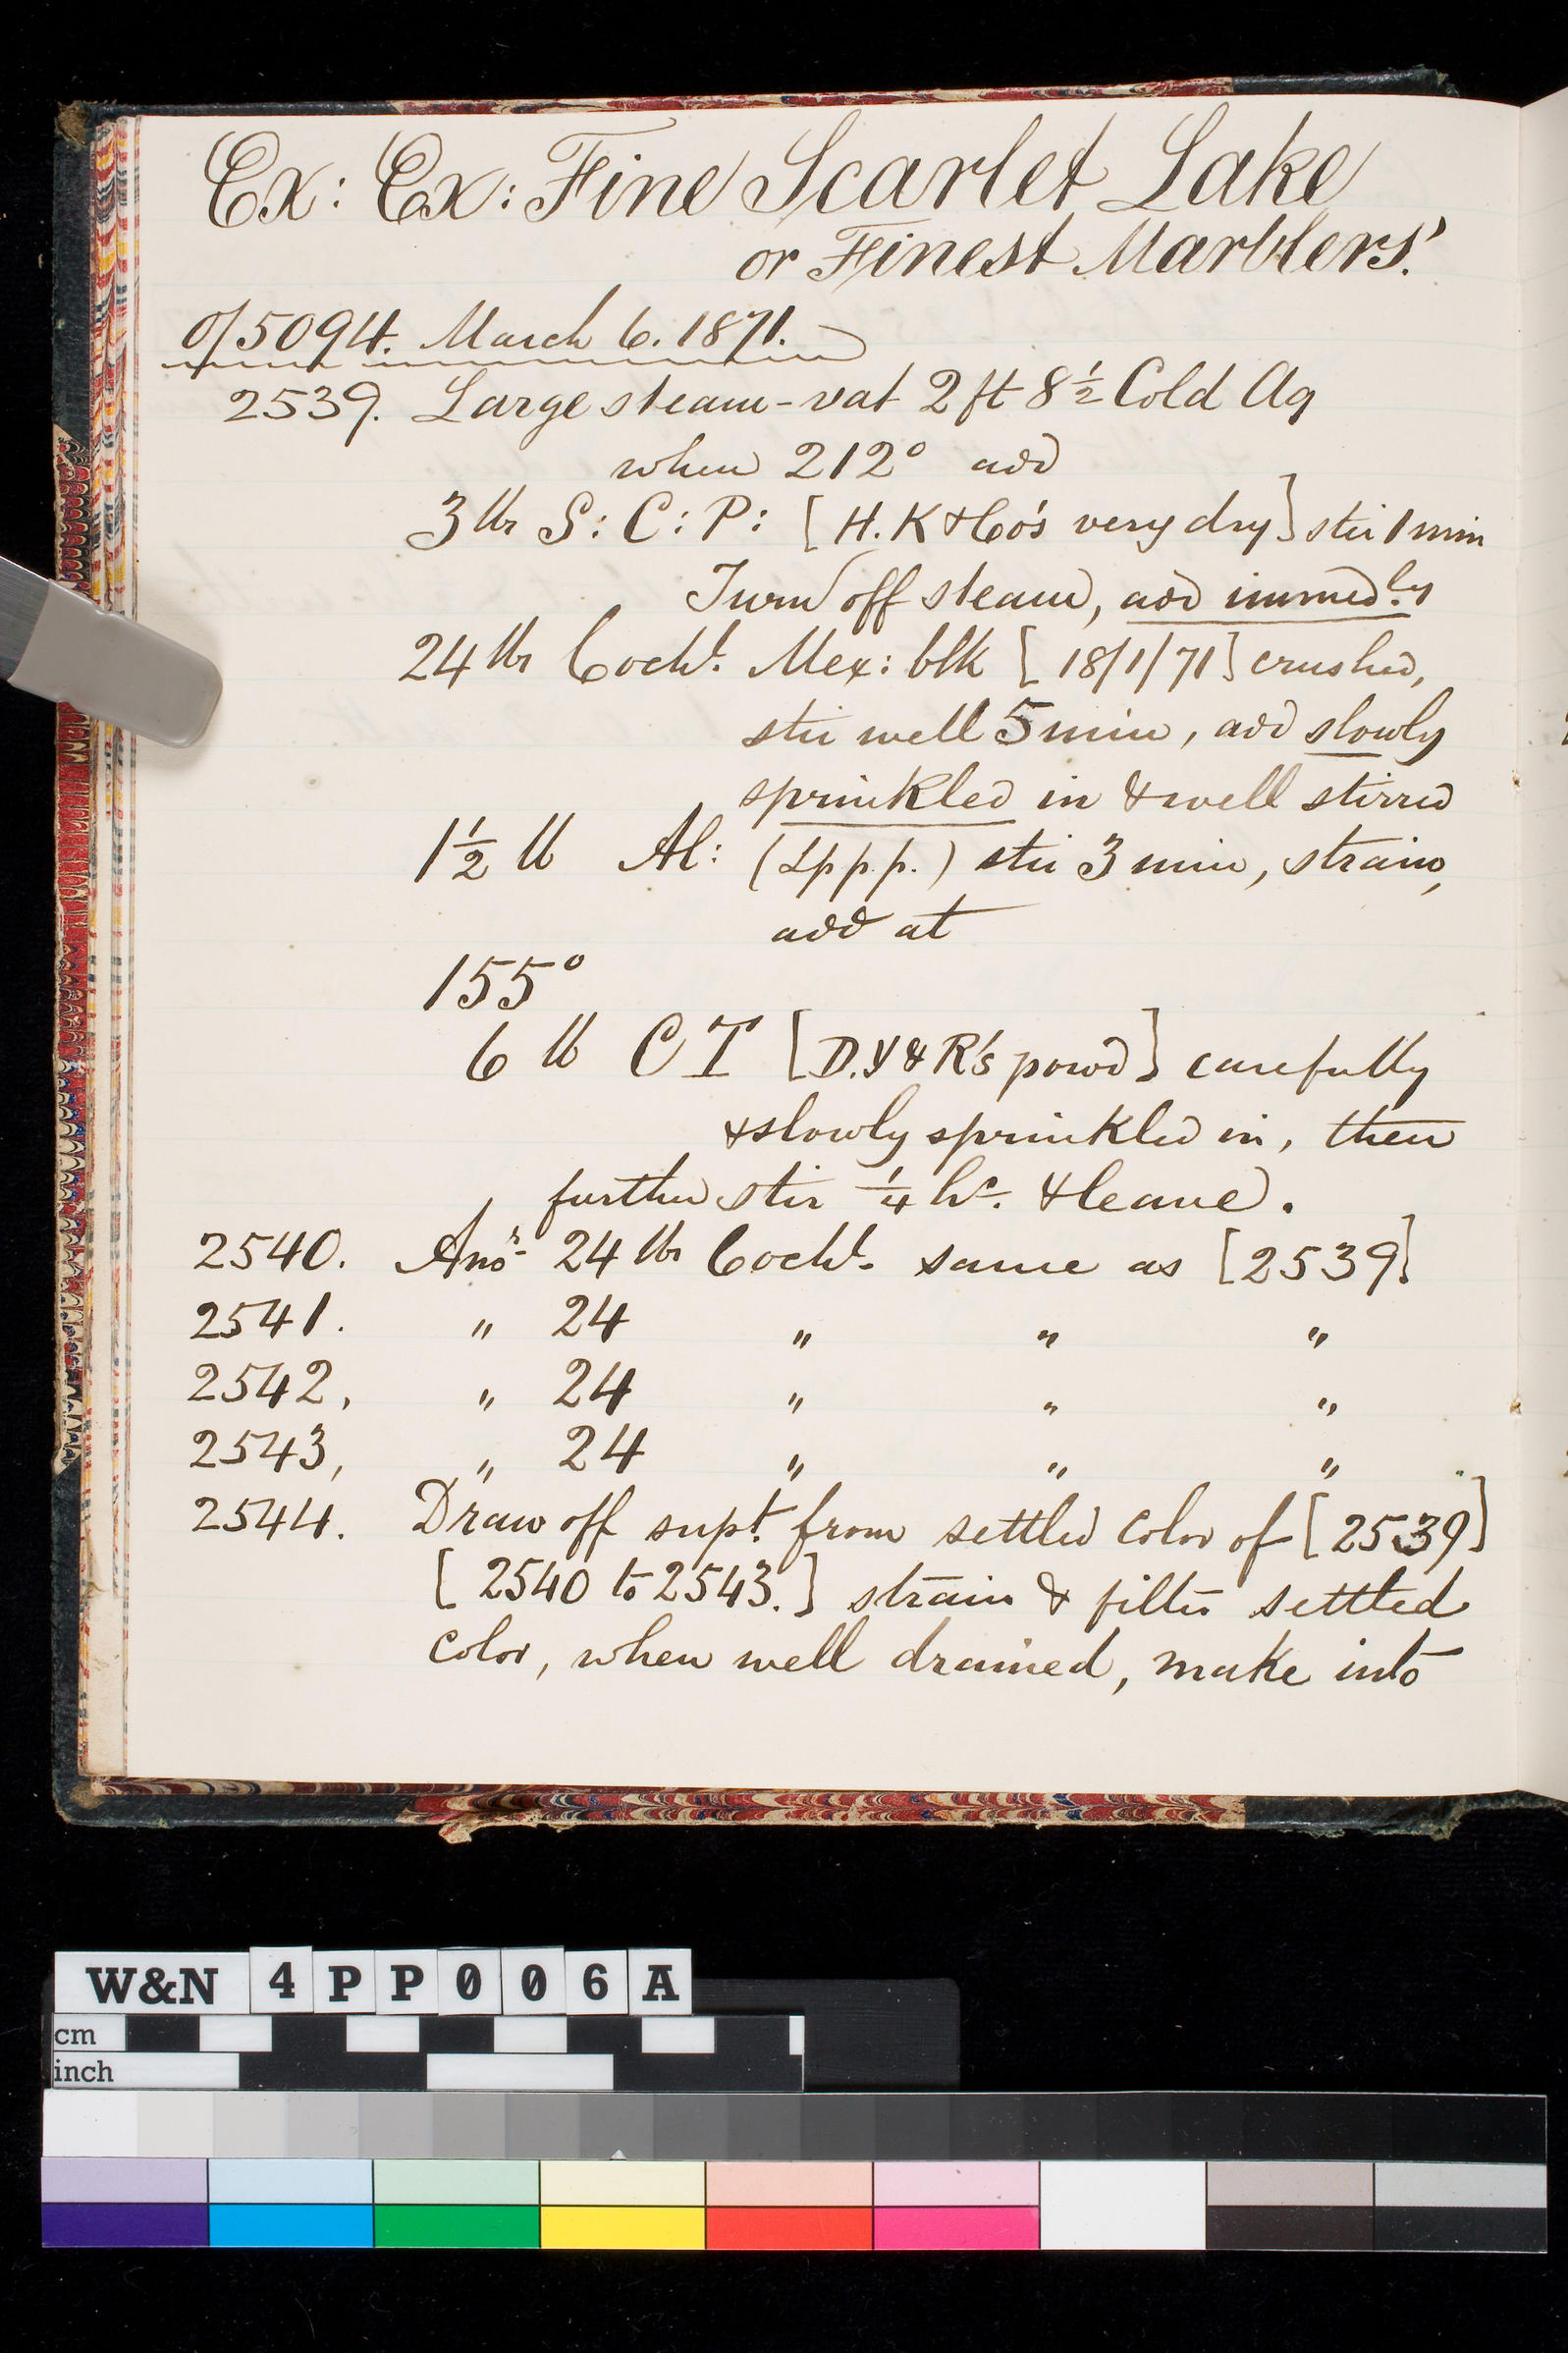 Ex: Ex: Fine Scarlet Lake
or Finest Marblers'.
o/5094. March 6. 1871.
2539. Large steam-vat 2 ft 8 ½ Cold Aq
when 212° add
3 lbs S: C: P: [H. K & Co's very dry] stir 1 min
Turn off steam, add immedly
24 lbs Cochl. Mex: blk [18/1/71] crushed,
stir well 5 min, add slowly
sprinkled in & well stirred
1½ lb Al: (Lppp.) stir 3 min, strain,
add at
155°
6 lb C T [D. Y & R's powd] carefully
& slowly sprinkled in, then
further stir ¼ hr. & leave.
2540. Anor 24 lbs Cochl. same as [2539]
2541. " 24 " " "
2542, " 24 " " "
2543, " 24 " " "
2544. Draw off supt. from settled color of [2539]
[2540 to 2543.] strain & filter settled
color, when well drained, make into
W&N 4PP006A
cm
inch